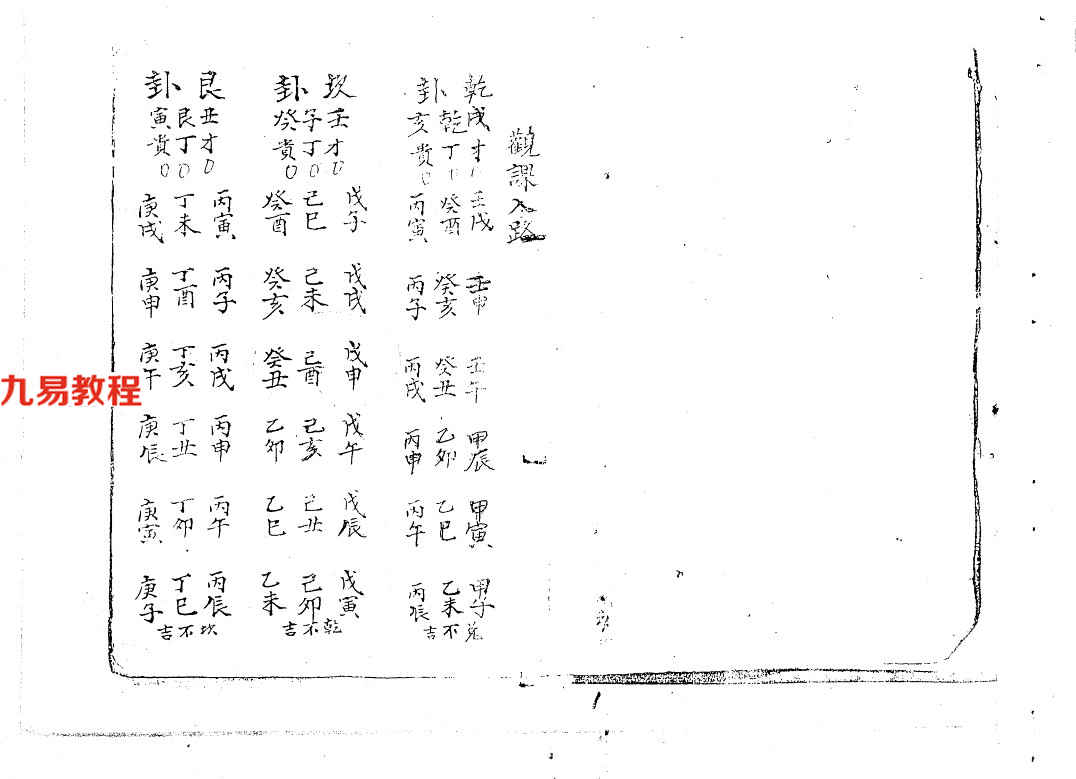 觀課入路
乾卦
戌乾亥
才丁貴
壬戌 癸酉 丙寅
壬申 癸亥 丙子
壬午 癸丑 丙戌
甲辰 乙卯 丙申
甲寅 乙巳 丙午
甲子 乙未 丙辰
不吉
坎卦
壬子癸
才丁貴
戊子 己巳 癸酉
戊戌 己未 癸亥
戊申 己酉 癸丑
戊午 己亥 乙卯
戊辰 己丑 乙巳
戊寅 己卯 乙未
乾不吉
艮卦
丑艮寅
才丁貴
丙寅 丁未 庚戌
丙子 丁酉 庚申
丙戌 丁亥 庚午
丙申 丁丑 庚辰
丙午 丁卯 庚寅
丙辰 丁巳 庚子
坎不吉
九易教程
1